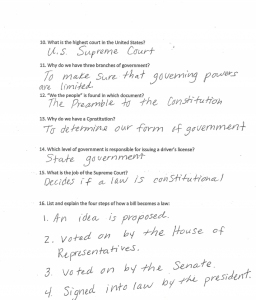 10. What is the highest court in the United States?
U.S. Supreme Court
11. Why do we have three branches of government?
To make sure that governing powers
are limited
12. "We the people" is found in which document?
The Preamble to the Constitution
13. Why do we have a Constitution?
To determine our form of government
14. Which level of government is responsible for issuing a driver's license?
State government
15. What is the job of the Supreme Court?
Decides if a law is constitutional
16. List and explain the four steps of how a bill becomes a law:
1. An idea is proposed.
2. Voted on by the House of
Representatives.
3. Voted on by the Senate.
4. Signed into law by the president.